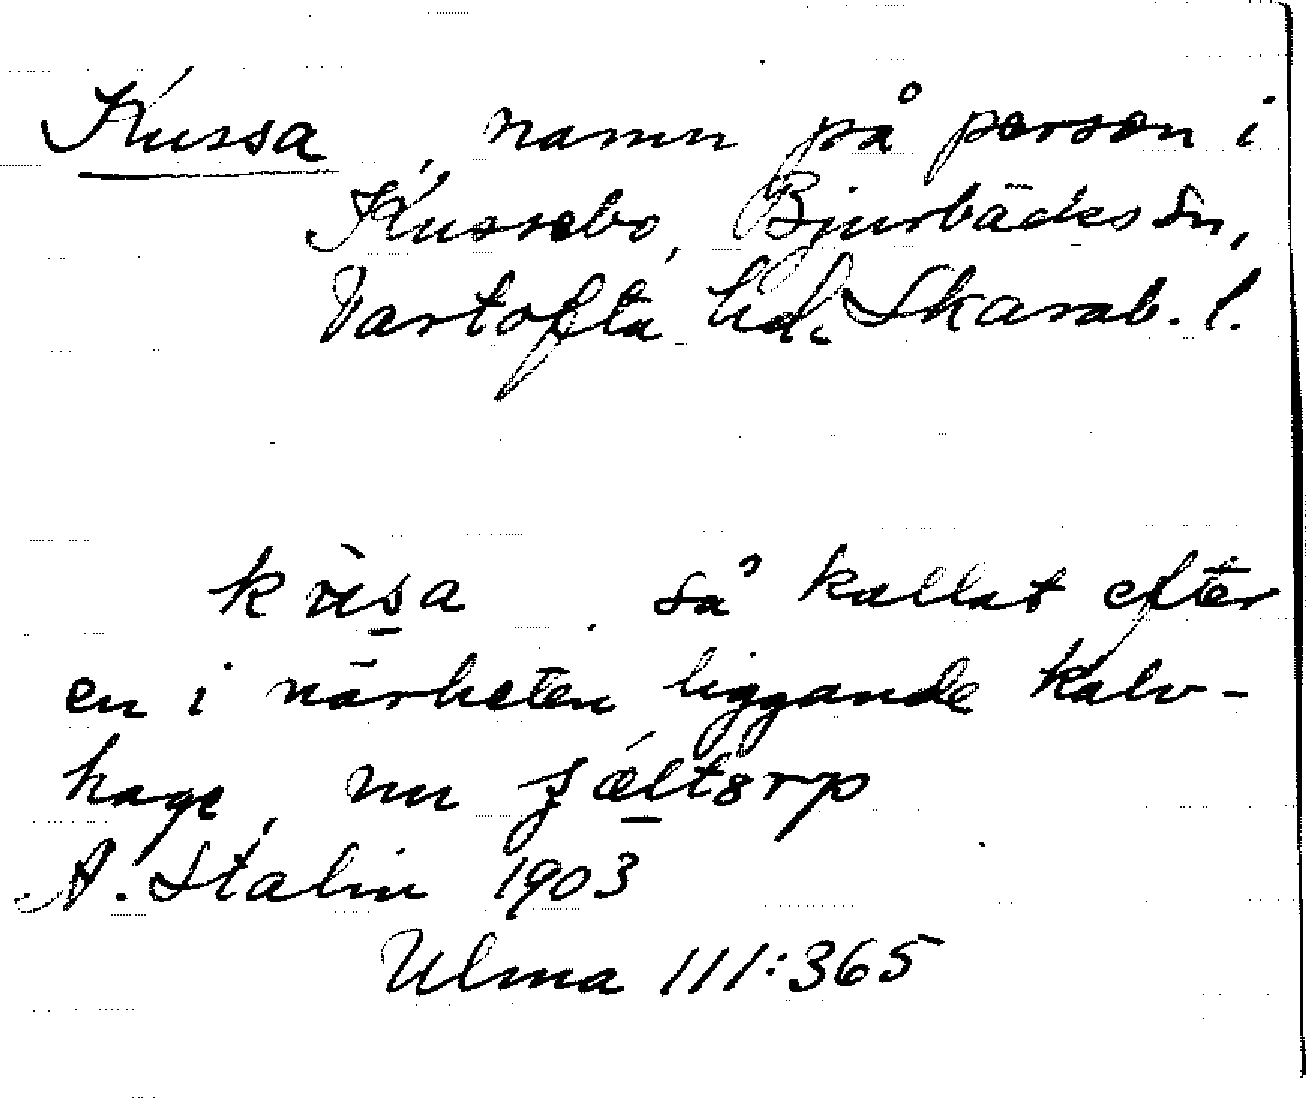 Kussa, namn på person i
Kussebo, Bjurbäcks sn,
Vartofta hd. Skarab. l.
så kallat efter
en i närheten liggande kalv-
hage, nu
A. Stalin 1903
Ulma 111:365